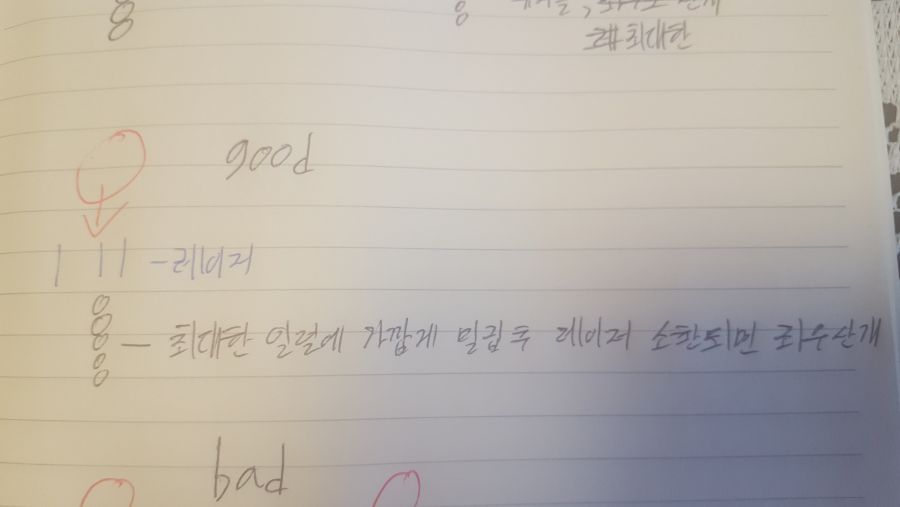 최대한
good
-레이저
- 최대한 일렬에 가깝게 밀집 후 레이저 소환되면 좌우산개
bad